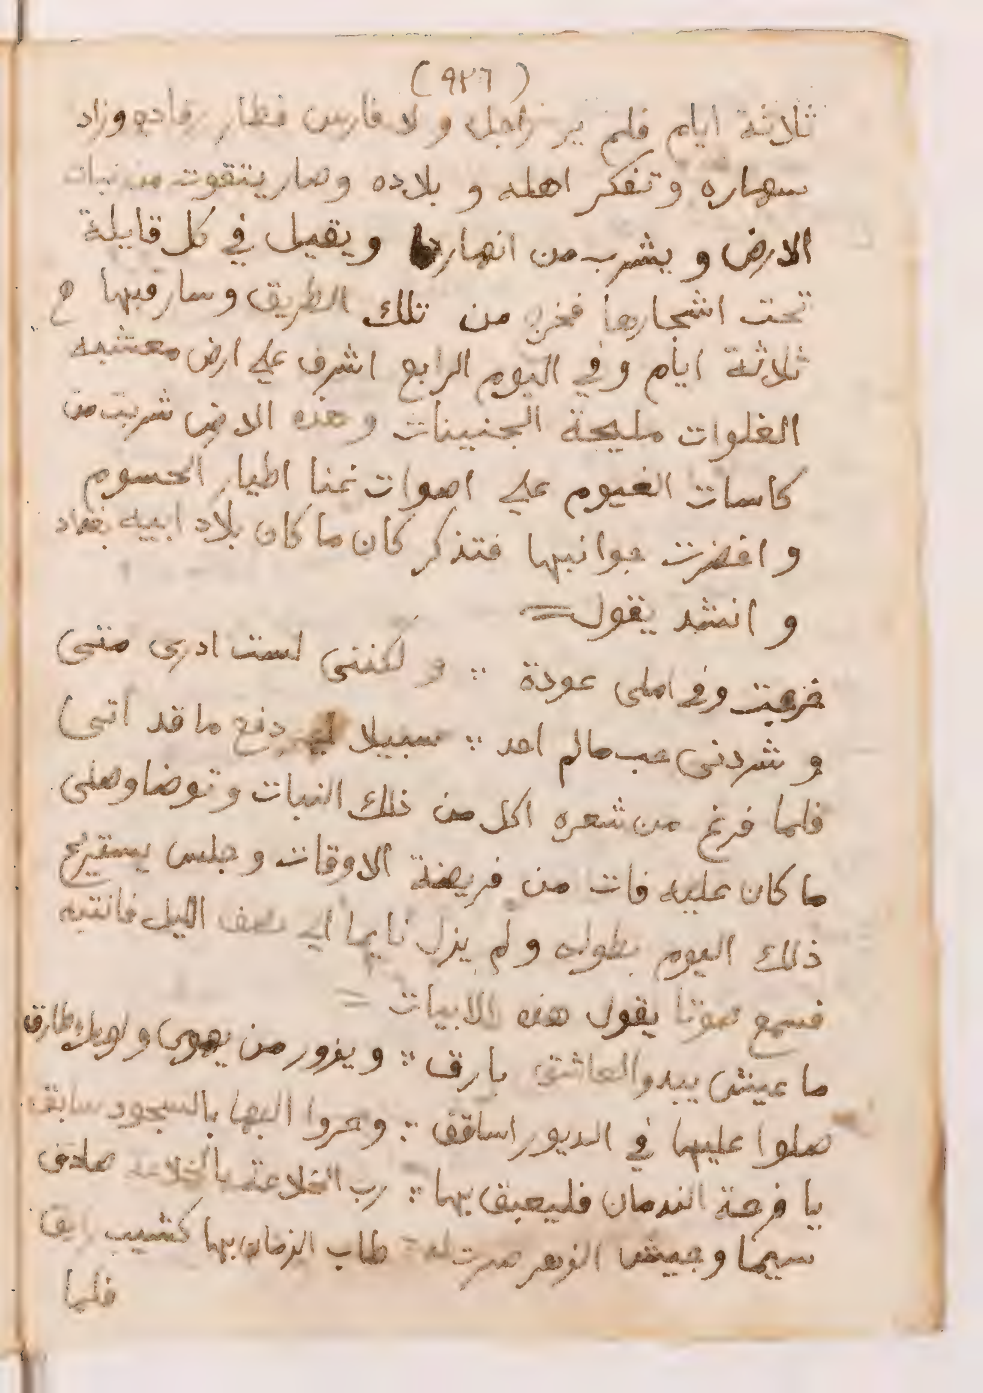 (٩٢٦)
ثلاثة ايام فلم ير راجل ولا فارس فطار رقاده وزاد
سهاره وتفكر اهله و بلاده وصار يتقوت من نبات
الارض و يشرب من انهارها ويقيل في كل قايلة
تحت اشجارها فخرج من تلك الطريق وسار فيها
ثلاثة ايام وفي اليوم الرابع اشرف على ارض معشبه
الفلوات مليحة الجنينات وهذه الارض شربت من
كاسات الغيوم على اصوات غنا اطيار الحسوم
و اخضرت جوانبها فتذكر كان ما كان بلاد ابيه بغداد
و انشد يقول =
خرجت وفي املى عودة ∴ و لكننى لست ادرى متى
و شردنى حب مالم اجد ∴ سبيلا الى دفع ما قد اتى
فلما فرغ من شعره اكل من ذلك النبات وتوضا وصلى
ما كان عليه فات من فريضة الاوقات وجلس يستريح
ذلك اليوم بطوله ولم يزل نايما الى نصف الليل فانتبه
فسمع صوتا يقول هذه الابيات =
ما عيش يبدو العاشق بارق ∴ ويزور من يهوى و طارق
صلوا عليها في الديور اساقف ∴ وخروا اليها بالسجود سابق
يا فرحة الندمان فليعبق بها ∴ رب الخلاعة بالخلاعه صادق
سيما وجيش الزهر له ∴ طاب الزمان بها
فلما